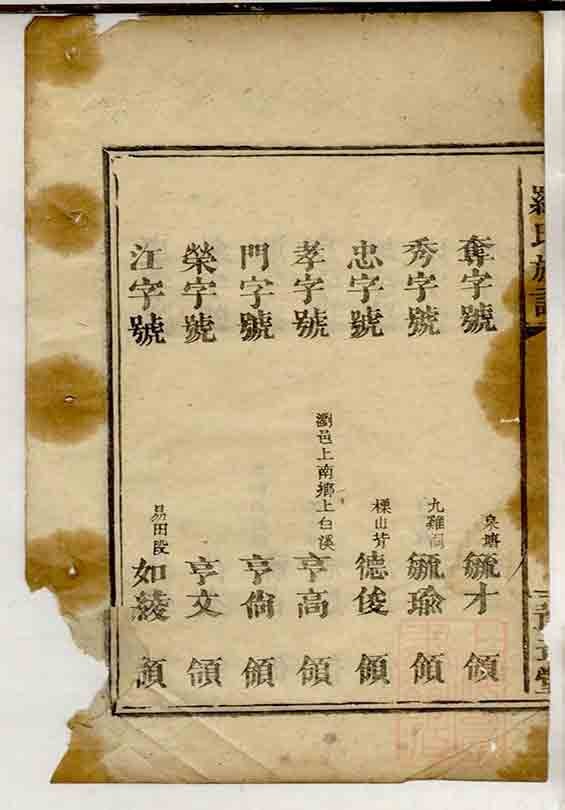 羅氏族譜
奪字號 泉塘 毓才 領
秀字號 九雞洞 毓瑜 領
忠字號 栗山背 德俊 領
孝字號 瀏邑上南鄉上白溪 亨高 領
門字號 亨尙 領
榮字號 亨文 領
江字號 易田段 如綾 領